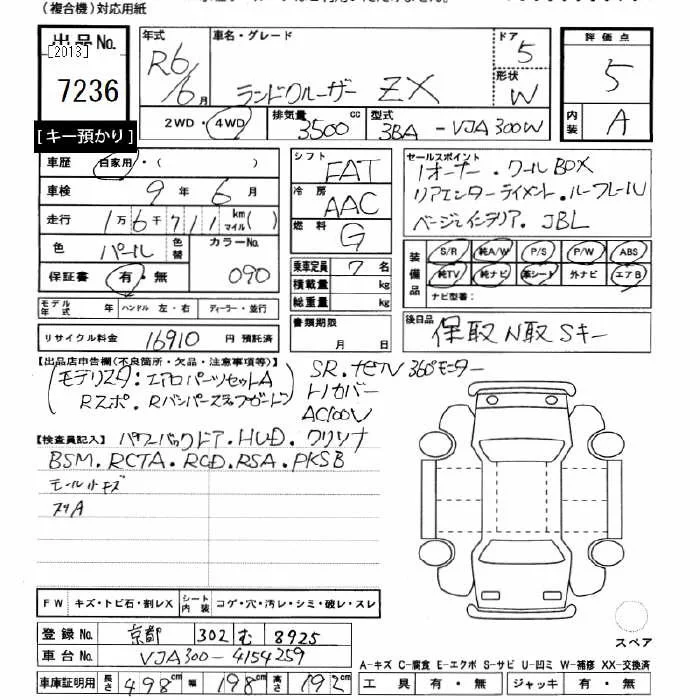 (複合機)対応用紙
出品No. [2013] 7236 [キー預かり]
年式 R6/6月 車名・グレード ランドクルーザー ZX ドア 5 形状 W
評価点 5 内装 A
2WD・4WD 排気量 3500cc 型式 3BA-VJA300W
車歴 自家用・( )
車検 9年6月
走行 1万6千711km マイル( )
色 パール 色替 カラーNo. 090
保証書 有・無
モデル年式 ハンドル 左・右 ディーラー・並行
リサイクル料金 16910 円 預託済
シフト FAT
冷房 AAC
燃料 G
乗車定員 7名
積載量 kg
総重量 kg
書類期限 月 日
セールスポイント
1オーナー・クールBOX
リアエンターテイメント・ルーフレール
ベージュインテリア・JBL
装備品 S/R 純A/W P/S P/W ABS
純TV 純ナビ 革シート 外ナビ エアB
ナビ型番:
後日品 保取 N取 Sキー
【出品店申告欄(不良箇所・欠品・注意事項等)】
(モデリスタ:エアロパーツセットA
Rスポ・Rバンパーステップガード)
SR.ナビTV 360°モニター
トノカバー
AC100V
【検査員記入】パワーバックドア.HUD.クリソナ
BSM.RCTA.RCD.RSA.PKSB
モール小キズ
スリA
FW キズ・トビ石・割レX シート内装 コゲ・穴・汚レ・シミ・破レ・スレ
登録No. 京都 302 む 8925
車台No. VJA300-4154259
車庫証明用 長さ 498cm 幅 198cm 高さ 192cm
スペア
A-キズ C-腐食 E-エクボ S-サビ U-凹ミ W-補修 XX-交換済
工具 有・無 ジャッキ 有・無